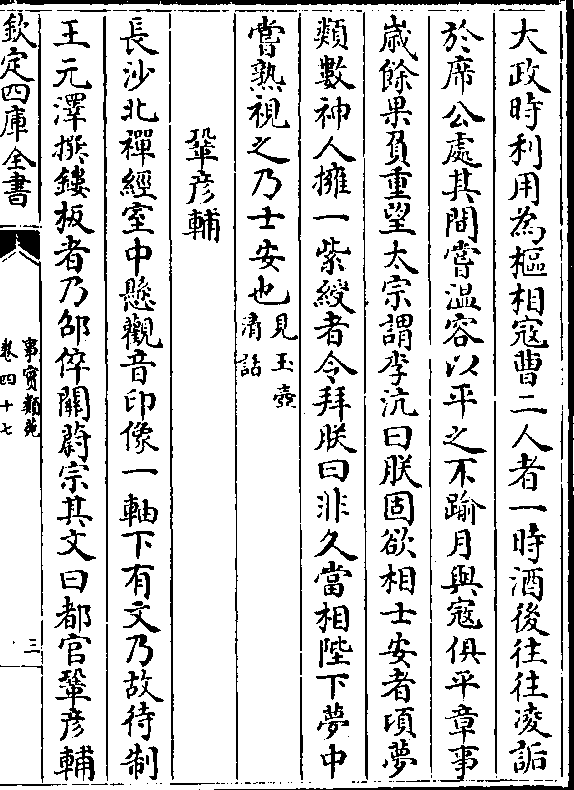 大政時利用為樞相寇曹二人者一時酒後往往凌詬
於席公處其間嘗温容以平之不踰月與寇俱平章事
歳餘果負重望太宗謂李沆曰朕固欲相士安者頃夢
類數神人擁一紫綬者令拜朕曰非久當相陛下夢中
嘗熟視之乃士安也見玉壺
清話
鞏彦輔
長沙北禪經室中懸觀音印像一軸下有文乃故待制
王元澤撰鏤板者乃邰倅關蔚宗其文曰都官鞏彦輔
欽定四庫全書
事實類苑
卷四十七
三